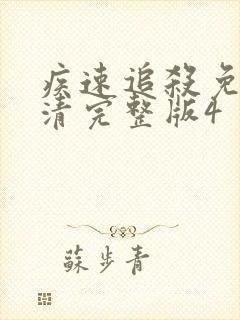 疾速追殺免
清完整版4
蘇步青